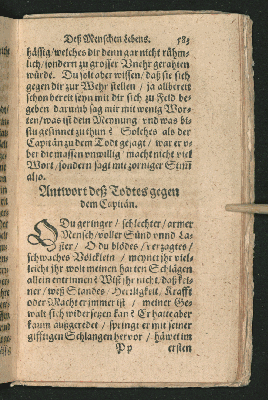 Deß Menschen Lebens. 583
hässig/welches dir denn gar nicht rühm-
lich/sondern zu grosser Vnehr gerahten
würde. Du solt aber wissen/daß sie sich
gegen dir zur Wehr stellen / ja allbereit
schon bereit seyn mit dir sich zu Feld be-
geben. Darumb sag mir mit wenig Wor-
ten/was ist dein Meynung vnd was bi-
stu gesinnet zu thun? Solches als der
Capitän zu dem Todt gesagt / war er v-
ber die massen vnwillig / macht nicht viel
Wort/sondern sagt mit zorniger Stim
also.
Antwort deß Todtes gegen
dem Capitän.
O Du geringer / schlechter / armer
Mensch/voller Sünd vnnd La-
ster / O du blödes / verzagtes/
schwaches Völcklein / meynet ihr viel-
leicht ihr wolt meinen harten Schlägen
allein entrinnen? Wist ihr nicht/daß kei-
ner / weß Standes / Herrligkeit / Krafft
oder Macht er immer ist / meiner Ge-
walt sich widersetzen kan? Er hatte aber
kaum außgeredet / springt er mit seiner
gifftigen Schlangen hervor / häwet im
Pp ersten